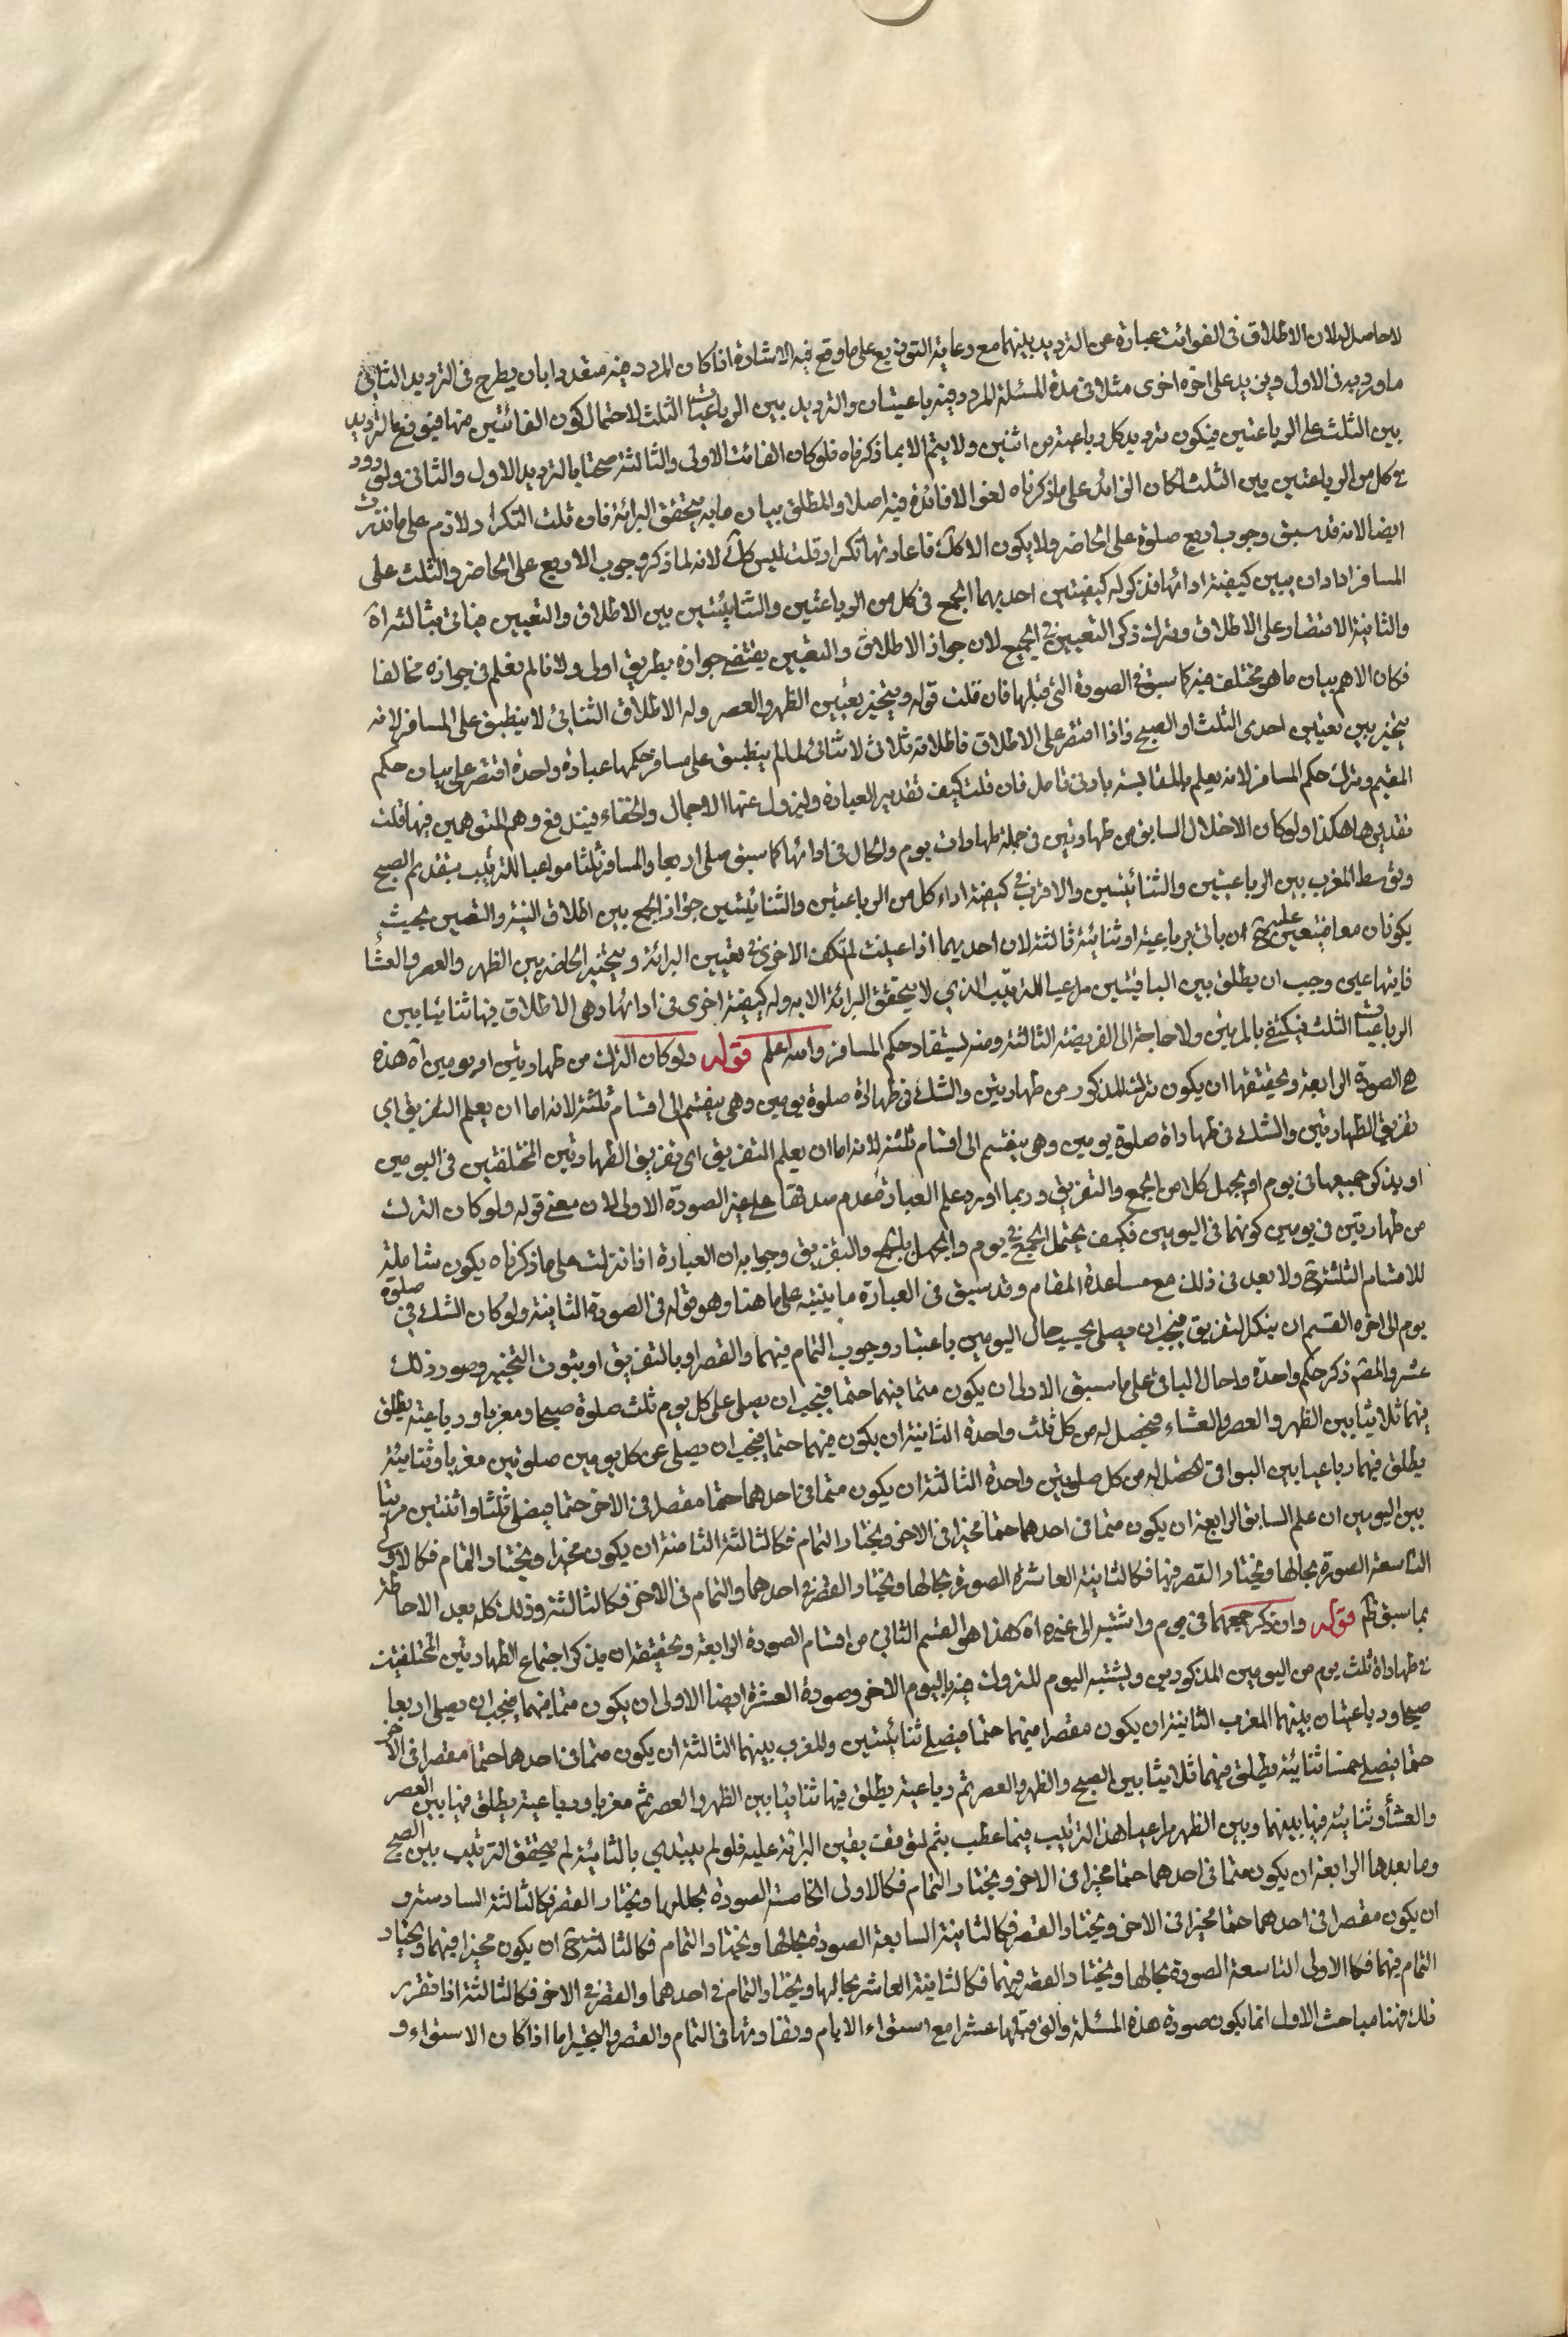 لا حاصل له لان الاطلاق فى الفوائت عبارة عن الترديد بينهما مع رعاية التوزيع على ما وقع فيه الاشارة اذا كان المردد فيه متعددا بان يطرح فى الترديد الثانى
ما ورد به فى الاول ويزيد على اخره اخرى مثلا فى هذه المسئلة المردد فيه رباعيتان والترديد بين الرباعيات الثلث لاحتمال كون الفائتين منها فيتوزع الترديد
بين الثلث على الرباعتين فيكون ترديد كل رباعية من اثنين ولا يتم الا بما ذكرناه فلو كان الفائت الاولى والثالثة صحتا بالترديد الاول والثانى ولو ردد
فى كل من الرباعتين بين الثلث لكان الزائد على ما ذكرناه لغوا لا فائدة فيه اصلا والمطلق بيان ما به يتحقق البرائة فان قلت التكرار لازم على ما قررت
ايضا لانه قد سبق وجوب اربع صلوة على الحاضر ولا يكون الا كك فاعادتها تكرار قلت ليس كك لانه لما ذكر وجوب الاربع على الحاضر والثلث على
المسافر اراد ان يبين كيفية ادائها فذكر له كيفيتين احديهما الجمع فى كل من الرباعتين والثنائيتين بين الاطلاق والتعيين فيأتى بثالثة اه
والثانية الاقتصار على الاطلاق وترك ذكر التعيين فى الجميع لان جواز الاطلاق والتعيين يقتضى جوازه بطريق اولى ولانا لم نعلم فى جوازه مخالفا
فكان الاهم بيان ما هو مختلف فيه كما سبق فى الصورة التى قبلها فان قلت قوله ويتخير بتعيين الظهر والعصر وله الاطلاق الثنائى لا ينطبق على المسافر لانه
يتخير بين تعيين احدى الثلث او الصبح فاذا اقتصر على الاطلاق فاطلاقه ثلاثى لا ثنائى لما لم ينطبق على مسافر حكمها عبارة واحدة اقتصر على بيان حكم
المقيم وترك حكم المسافر لانه يعلم بالمقايسة بادنى تامل فان قلت كيف تقدير العبارة وليزول عنها الاجمال والخفاء فيندفع وهم المتوهمين فيها قلت
تقديرها هكذا ولو كان الاخلال السابق من طهارتين فى جملة طهارات يوم والحال فى ادائها كما سبق صلى اربعا والمسافر ثلثا مراعيا للترتيب بتقديم الصبح
وتوسط المغرب بين الرباعيتين والثنائيتين والاقرب فى كيفية اداء كل من الرباعتين والثنائيتين جواز الجمع بين اطلاق النية والتعيين بحيث
يكونان معا فيتعين عليه ح ان يأتى برباعية او ثنائية ثالثة لان احديهما اذا عينت لم تكف الاخرى فى تعيين البرائة ويتخير الحاضر بين الظهر والعصر والعشا
فايتها عين وجب ان يطلق بين الباقيتين مراعيا للترتيب الذى لا يتحقق البرائة الا به وله كيفية اخرى فى ادائها وهى الاطلاق فيها ثنائيا بين
الرباعيات الثلث فيكتفى بالمرتين ولا حاجة الى الفريضة الثالثة ومنه يستفاد حكم المسافر والله اعلم قوله ولو كان الترك من طهارتين او يومين آه هذه
هى الصورة الرابعة وتحقيقها ان يكون ترك المذكور من طهارتين والشك فى طهارة صلوة يومين وهى ينقسم الى اقسام ثلثة لانه اما ان يعلم التفريق اى
تفريق الطهارتين والشك فى طهاراة صلوة يومين وهى ينقسم الى اقسام ثلثة لانه اما ان يعلم التفريق اى تفريق الطهارتين المختلفتين فى اليومين
او يذكر جميعها فى يوم او يجهل كلا من الجمع والتفريق وربما اورد على العبارة عدم صدقها على غير الصورة الاولى لان معنى قوله ولو كان الترك
من طهارتين فى يومين كونهما فى اليومين فكيف يحتمل الجمع فى يوم والجهل بالجمع والتفريق وجوابه ان العبارة اذا نزلت على ما ذكرناه يكون شاملة
للاقسام الثلثة ح ولا بعد فى ذلك مع مساعدة المقام وقد سبق فى العبارة ما ينبه على ما هنا وهو قوله فى الصورة الثانية ولو كان الشك فى صلوة
يوم الى اخره القسم ان يذكر التفريق فيجب ان يصلى بحسب حال اليومين باعتبار وجوب التمام فيهما والقصر او بالتفريق او بثبوت التخيير وصور ذلك
عشر والمص ذكر حكم واحدة واحال الباقى على ما سبق الاولى ان يكون متما فيهما حتما فيجب ان يصلى على كل يوم ثلث صلوة صبحا ومغربا ورباعية يطلق
فيهما ثلاثيا بين الظهر والعصر والعشاء فيحصل له من كل ثلث واحدة الثانية ان يكون فيهما حتما فيجب ان يصلى عن كل يومين صلوتين مغربا وثنائية
يطلق فيهما رباعيا بين البواقى لتحصل له من كل صلوتين واحدة الثالثة ان يكون متما فى احدهما حتما مقصرا فى الاخر حتما فيصلى ثلثا واثنتين مرتبا
بين اليومين ان علم السابق الرابعة ان يكون متما فى احدهما حتما مخيرا فى الاخر ويختار التمام فكالثالثة الثامنة ان يكون مخيرا ويختار التمام فكالاولى
التاسعة الصورة بحالها ويختار القصر فيها فكالثانية العاشرة الصورة بحالها ويختار القصر فى احدهما والتمام فى الاخر فكالثالثة وذلك كله بعد الاحاطة
بما سبق قوله وان ذكر جمعهما فى يوم واشتبه الى غيره اه هذا هو القسم الثانى من اقسام الصورة الرابعة وتحقيقه ان يذكر اجتماع الطهارتين المختلفتين
فى طهاراة ثلث يوم من اليومين المذكورين ويشتبه اليوم المتروك فيه باليوم الاخر وصورة العشرة ايضا الاولى ان يكون متما فيهما فيجب ان يصلى اربعا
صبحا ورباعيتان بينهما المغرب الثانية ان يكون مقصرا فيهما حتما فيصلى ثنائيتين والمغرب بينهما الثالثة ان يكون متما فى احدهما حتما مقصرا فى الاخر
حتما فيصلى خمسا ثنائية يطلق فيهما ثلاثيا بين الصبح والظهر والعصر ثم رباعية يطلق فيها ثنائيا بين الظهر والعصر ثم مغربا ورباعية يطلق فيها بين العصر
والعشأ وثنائية فيها بينهما وبين الظهر مراعيا هذا الترتيب فيما عطب بثم لتوقف يقين البرائة عليه فلو لم يبتدى بالثنائية لم يتحقق الترتيب بين الصبح
وما بعدها الرابعة ان يكون متما فى احدهما حتما مخيرا فى الاخر ويختار التمام فكالاولى الخامسة الصورة بحالها ويختار القصر فكالثالثة السادسة و
ان يكون مقصرا فى احدهما حتما مخيرا فى الاخر ويختار القصر فكالثانية السابعة الصورة بحالها ويختار التمام فكالثالثة ح ان يكون مخيرا فيهما ويختار
التمام فيهما فكالاولى التاسعة الصورة بحالها ويختار القصر فيهما فكالثانية العاشر بحالها ويختار التمام فى احدهما والقصر فى الاخر فكالثالثة اذا تقرر
ذلك فهنا مباحث الاول انما يكون صورة هذه المسئلة والتى قبلها عشرا مع استواء الايام وتفاوتها فى التمام والقصر والتخير اما اذا كان الاستواء و